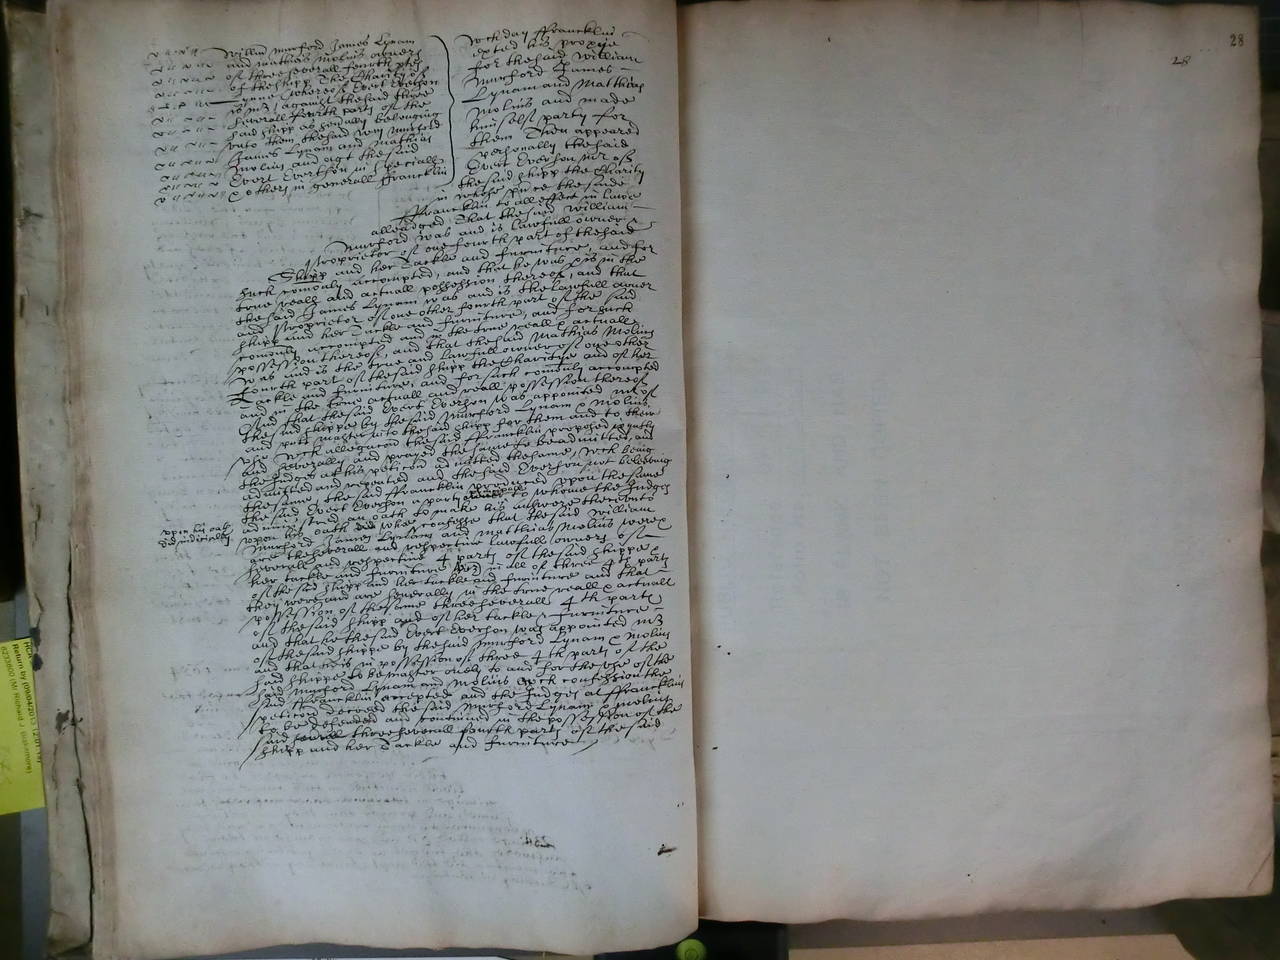 28
28
Willm Murford James Lynam
and Mathias Molins owners
of three severall fourth ptes
of the shipp the Charity of
whereof Evert Everson
is mr, against the said three
severall fourth parts of the
said shipp as severally belonging
unto them the said Wm Murford
James Lynam and Mathias
Molins and agt the said
Evert Everson in speciall
& others in generall Francklin
wch day Francklin
exhted his proxie
for the said William
Murford James
Lynam and Matthias
Molins and made
himselfe party for
them Then appeared
personally the said
Evert Everson Mr of
the said shipp the Charity
in whose pnce the said
Francklin to all effect in lawe
alleadged That the said William
Murford was and is lawfull owner &
Proprietor of one fourth part of the said
Shipp and her Tackle and furniture, and for
such comonly accompted, and that he was & is in the
true reall and actuall possession thereof, and that
the said James Lynam was and is the lawfull owner
and Proprietor of one other fourth part of the said
shipp and her Tackle and furniture, and for such
comonly accompted and in the true reall & actuall
possession thereof, and that the said Mathias Molins
was and is the true and lawfull owner of one other
fourth part of the said shipp the Charitye and of her
Tackle and furniture, and for such comonly accompted
and in the true actuall and reall possession thereof
And that the said Evert Everson was appointed Mr of
the said shippe by the said Murford Lynam & Molins
and putt master into the said shipp for them and to their
use wch allegacon the said Francklin proposed joyntly
and severally and prayed the same to be admitted, and
the Judges at his peticon admitted the same, wch being
admitted and repeated and the said Everson not beleeving
the same, the said Francklin produced upon the same
the said Evert Everson a party to whome the Judges
administred an oath to make his answere thereunto
upon his oath did
did judicially
upon his oath who confesse that the said William
Murford James Lynam and Matthias Molins were &
are the severall and respective lawfull owners of
severall and respective 4 parts of the said shippe &
her tackle and furniture in all of three 4th parts
of the said shipp and her tackle and furniture and that
they were and are severally in the true reall & actuall
possession of the same three severall 4th parts
of the said shipp and of her tackle & furniture
and that he the said Evert Everson was appointed Mr
of the said shippe by the said Murford Lynam & Molins
and that he is in possession of three 4th parts of the
said shippe to be master onely to and for the use of the
said Murford Lynam and Molins wch confession the
said Francklin accepted and the Judges at Francklins
peticon decreed the said Murford Lynam & Molins
to be defended and continued in the possession of the
said three severall fourth parts of the said
shipp and her Tackle and furniture